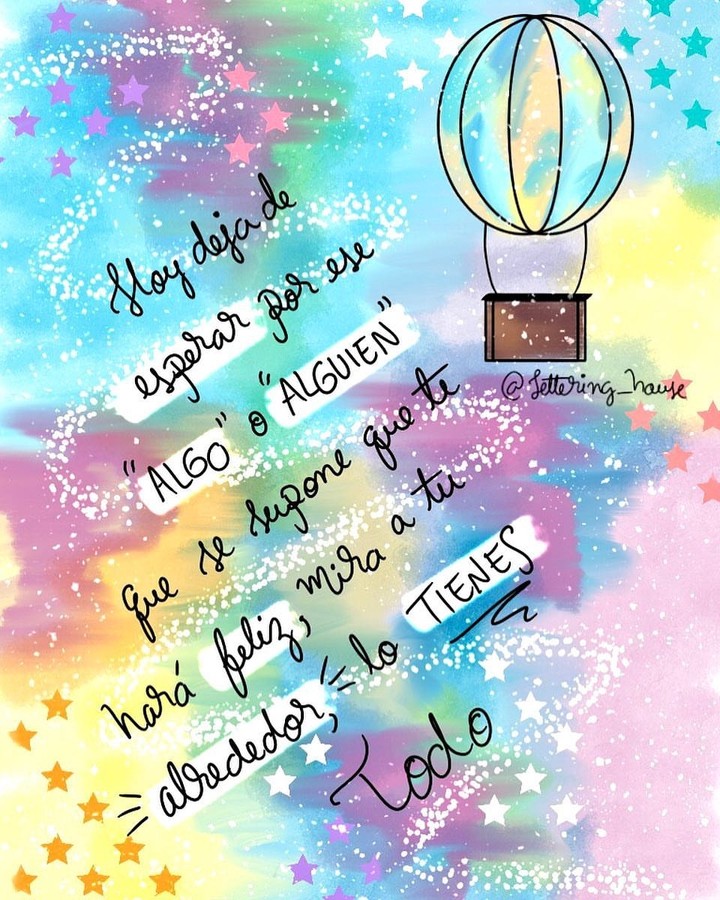 Hoy deja de
esperar por ese
"ALGO" o "ALGUIEN"
que se supone que te
hará feliz, mira a tu
alrededor, lo TIENES
Todo
@Lettering_house